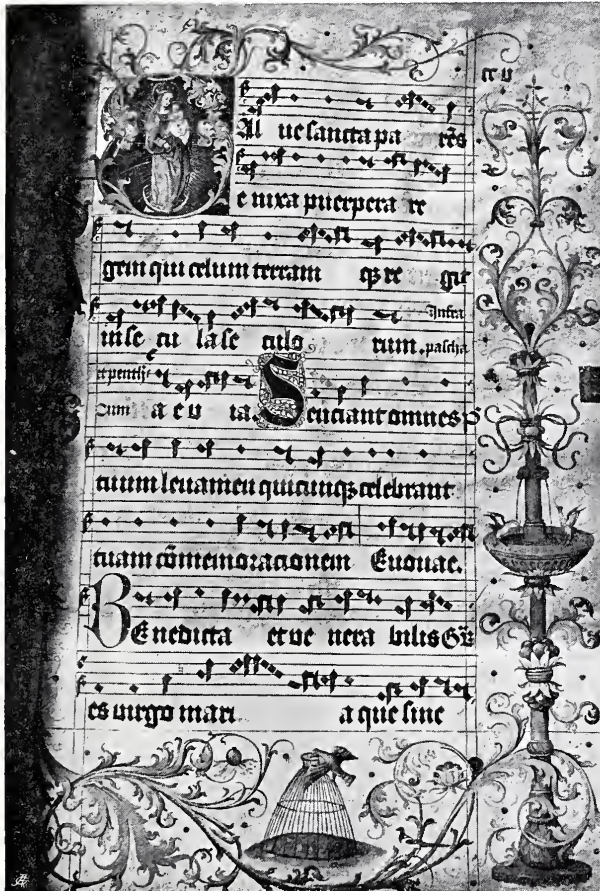 Al ue sancta pa rēs
e nixa puerpera re
gem qui celum terram qȝ re git
in se cu la se culo rum. Infra pascha
et penthe
cum a e u ia. Senciant omnes
tuum leuamen quicunqȝ celebrant
tuam cōmemoracionem Euouae.
BEnedicta et ue nera bilis
es uirgo mari a que sine